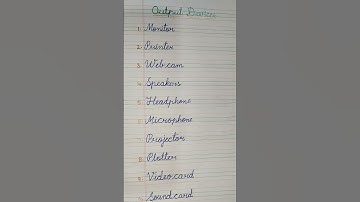 Output Devices
1. Monitor
2. Printer
3. Web cam
4. Speakers
5. Headphone
6. Microphone
7. Projector
8. Plotter
9. Video card
10. Sound card